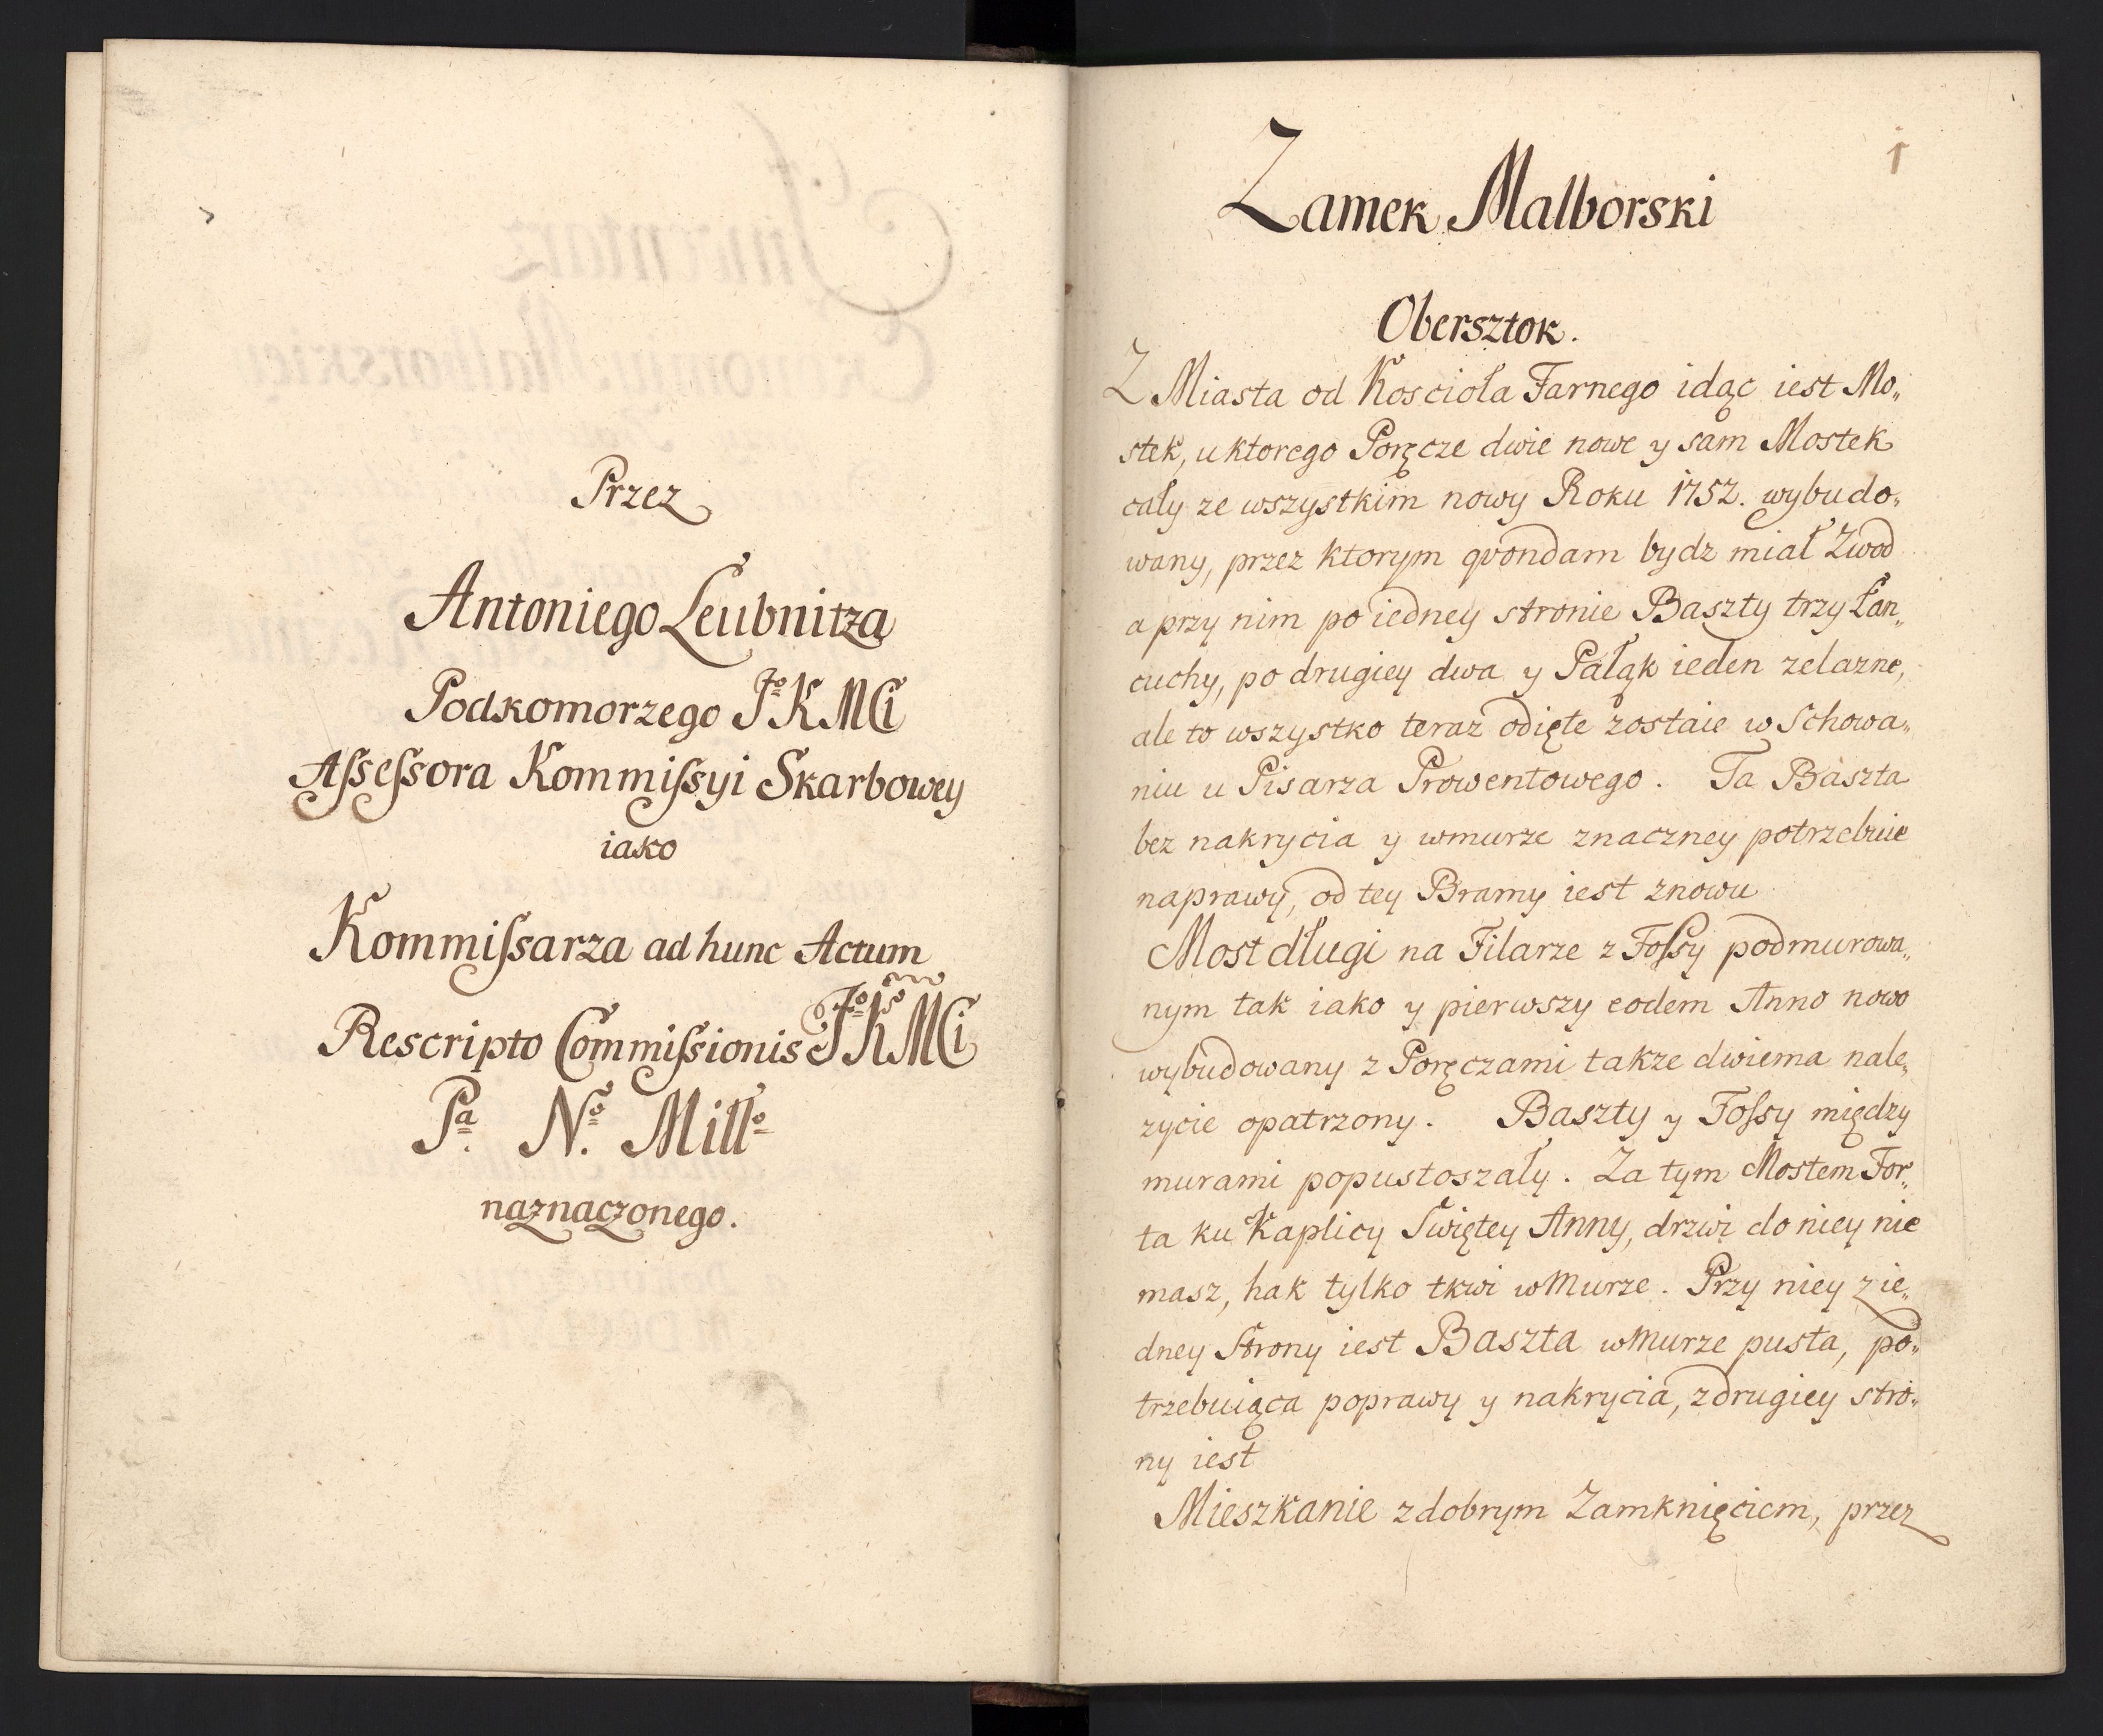 Przez
Antoniego Leubnitza
Podkomorzego Jº K MCi
Aſseſsora Kommiſsyi Skarbowey
iako
Kommiſsarza ad hunc Actum
Rescripto Commiſsionis Jº K MCi
Pª. N.º Millº
naznaczonego.
1
Zamek Malborski
Obersztok.
Z Miasta od Koscioła Farnego idąc iest Mo„
stek, u ktorego Poręcze dwie nowe y sam Mostek
cały ze wszystkim nowy Roku 1752. wybudo„
wany, przez ktorym qvondam bydz miał Zwod
a przy nim po iedney stronie Baszty trzy Łan„
cuchy, po drugiey dwa y Pałąk ieden zelazne,
ale to wszystko teraz odięte zostaie w Schowa„
niu u Pisarza Prowentowego. Ta Baszta
bez nakrycia y w murze znaczney potrzebuie
naprawy, od tey Bramy iest znowu
Most długi na Filarze z Foſsy podmurowa„
nym tak iako y pierwszy eodem Anno nowo
wybudowany z Poręczami takze dwiema nale„
zycie opatrzony. Baszty y Foſsy między
murami popustoszały. Za tym Mostem For„
ta ku Kaplicy Swiętey Anny, drzwi do niey nie
masz, hak tylko tkwi w Murze. Przy niey z ie„
dney Strony iest Baszta w Murze pusta, po„
trzebuiąca poprawy y nakrycia, z drugiey stro„
ny iest
Mieszkanie z dobrym Zamknięciem, przez